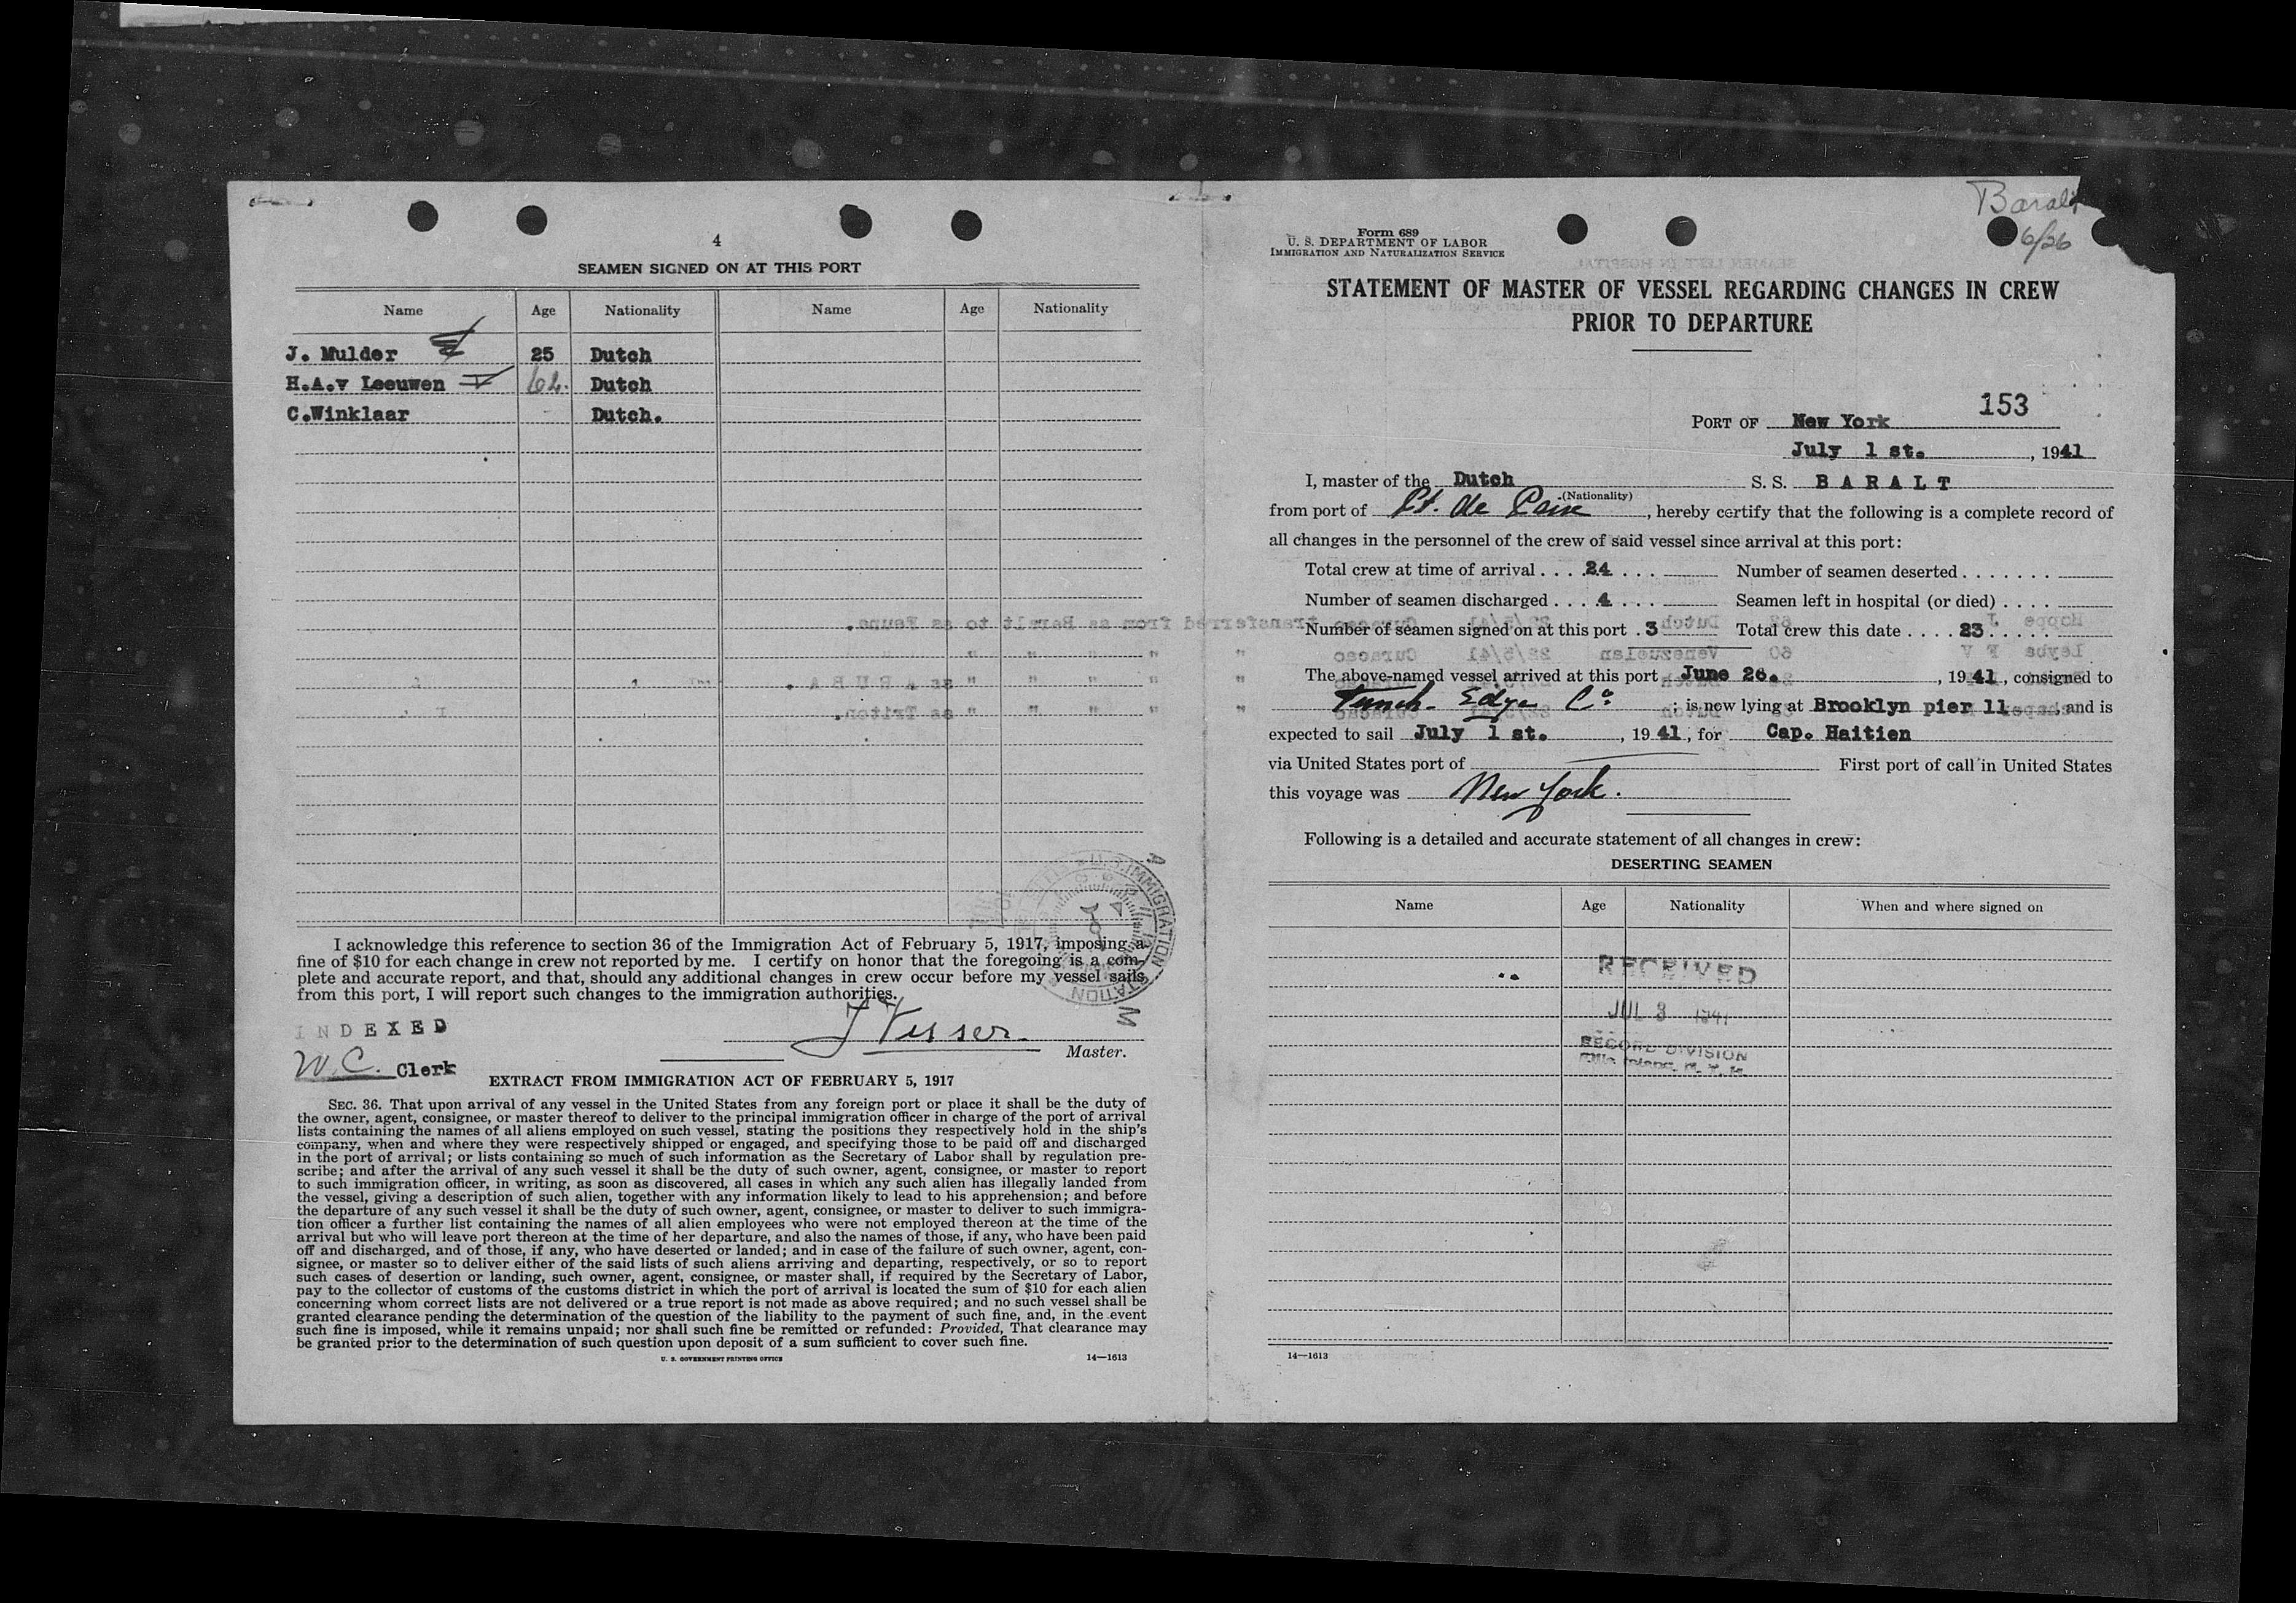 4
SEAMEN SIGNED ON AT THIS PORT
Name Age Nationality Name Age Nationality
J. Mulder 25 Dutch
H.A.v Leeuwen Dutch
C.Winklaar Dutch.
I acknowledge this reference to section 36 of the Immigration Act of February 5, 1917, imposing a
fine of $10 for each change in crew not reported by me. I certify on honor that the foregoing is a com-
plete and accurate report, and that, should any additional changes in crew occur before my vessel sails
from this port, I will report such changes to the immigration authorities.
INDEXED
J Visser.
Master.
W.C. Clerk
EXTRACT FROM IMMIGRATION ACT OF FEBRUARY 5, 1917
SEC. 36. That upon arrival of any vessel in the United States from any foreign port or place it shall be the duty of
the owner, agent, consignee, or master thereof to deliver to the principal immigration officer in charge of the port of arrival
lists containing the names of all aliens employed on such vessel, stating the positions they respectively hold in the ship's
company, when and where they were respectively shipped or engaged, and specifying those to be paid off and discharged
in the port of arrival; or lists containing so much of such information as the Secretary of Labor shall by regulation pre-
scribe; and after the arrival of any such vessel it shall be the duty of such owner, agent, consignee, or master to report
to such immigration officer, in writing, as soon as discovered, all cases in which any such alien has illegally landed from
the vessel, giving a description of such alien, together with any information likely to lead to his apprehension; and before
the departure of any such vessel it shall be the duty of such owner, agent, consignee, or master to deliver to such immigra-
tion officer a further list containing the names of all alien employees who were not employed thereon at the time of the
arrival but who will leave port thereon at the time of her departure, and also the names of those, if any, who have been paid
off and discharged, and of those, if any, who have deserted or landed; and in case of the failure of such owner, agent, con-
signee, or master so to deliver either of the said lists of such aliens arriving and departing, respectively, or so to report
such cases of desertion or landing, such owner, agent, consignee, or master shall, if required by the Secretary of Labor,
pay to the collector of customs of the customs district in which the port of arrival is located the sum of $10 for each alien
concerning whom correct lists are not delivered or a true report is not made as above required; and no such vessel shall be
granted clearance pending the determination of the question of the liability to the payment of such fine, and, in the event
such fine is imposed, while it remains unpaid; nor shall such fine be remitted or refunded: Provided, That clearance may
be granted prior to the determination of such question upon deposit of a sum sufficient to cover such fine.
U. S. GOVERNMENT PRINTING OFFICE 14—1613
Baralt
6/26
Form 689
U. S. DEPARTMENT OF LABOR
IMMIGRATION AND NATURALIZATION SERVICE
STATEMENT OF MASTER OF VESSEL REGARDING CHANGES IN CREW
PRIOR TO DEPARTURE
153
PORT OF New York
July 1 st., 1941
I, master of the Dutch S. S. BARALT
(Nationality)
from port of Pt. de Paix, hereby certify that the following is a complete record of
all changes in the personnel of the crew of said vessel since arrival at this port:
Total crew at time of arrival .... 24 .... Number of seamen deserted .......
Number of seamen discharged ... 4 .... Seamen left in hospital (or died) ....
Number of seamen signed on at this port . 3 Total crew this date .... 23 .....
The above-named vessel arrived at this port June 26., 1941, consigned to
Funch Edye Co; is now lying at Brooklyn pier 11, and is
expected to sail July 1 st., 1941, for Cap. Haitien
via United States port of First port of call in United States
this voyage was New York.
Following is a detailed and accurate statement of all changes in crew:
DESERTING SEAMEN
Name Age Nationality When and where signed on
RECEIVED
JUL 3 1941
RECORD DIVISION
14—1613